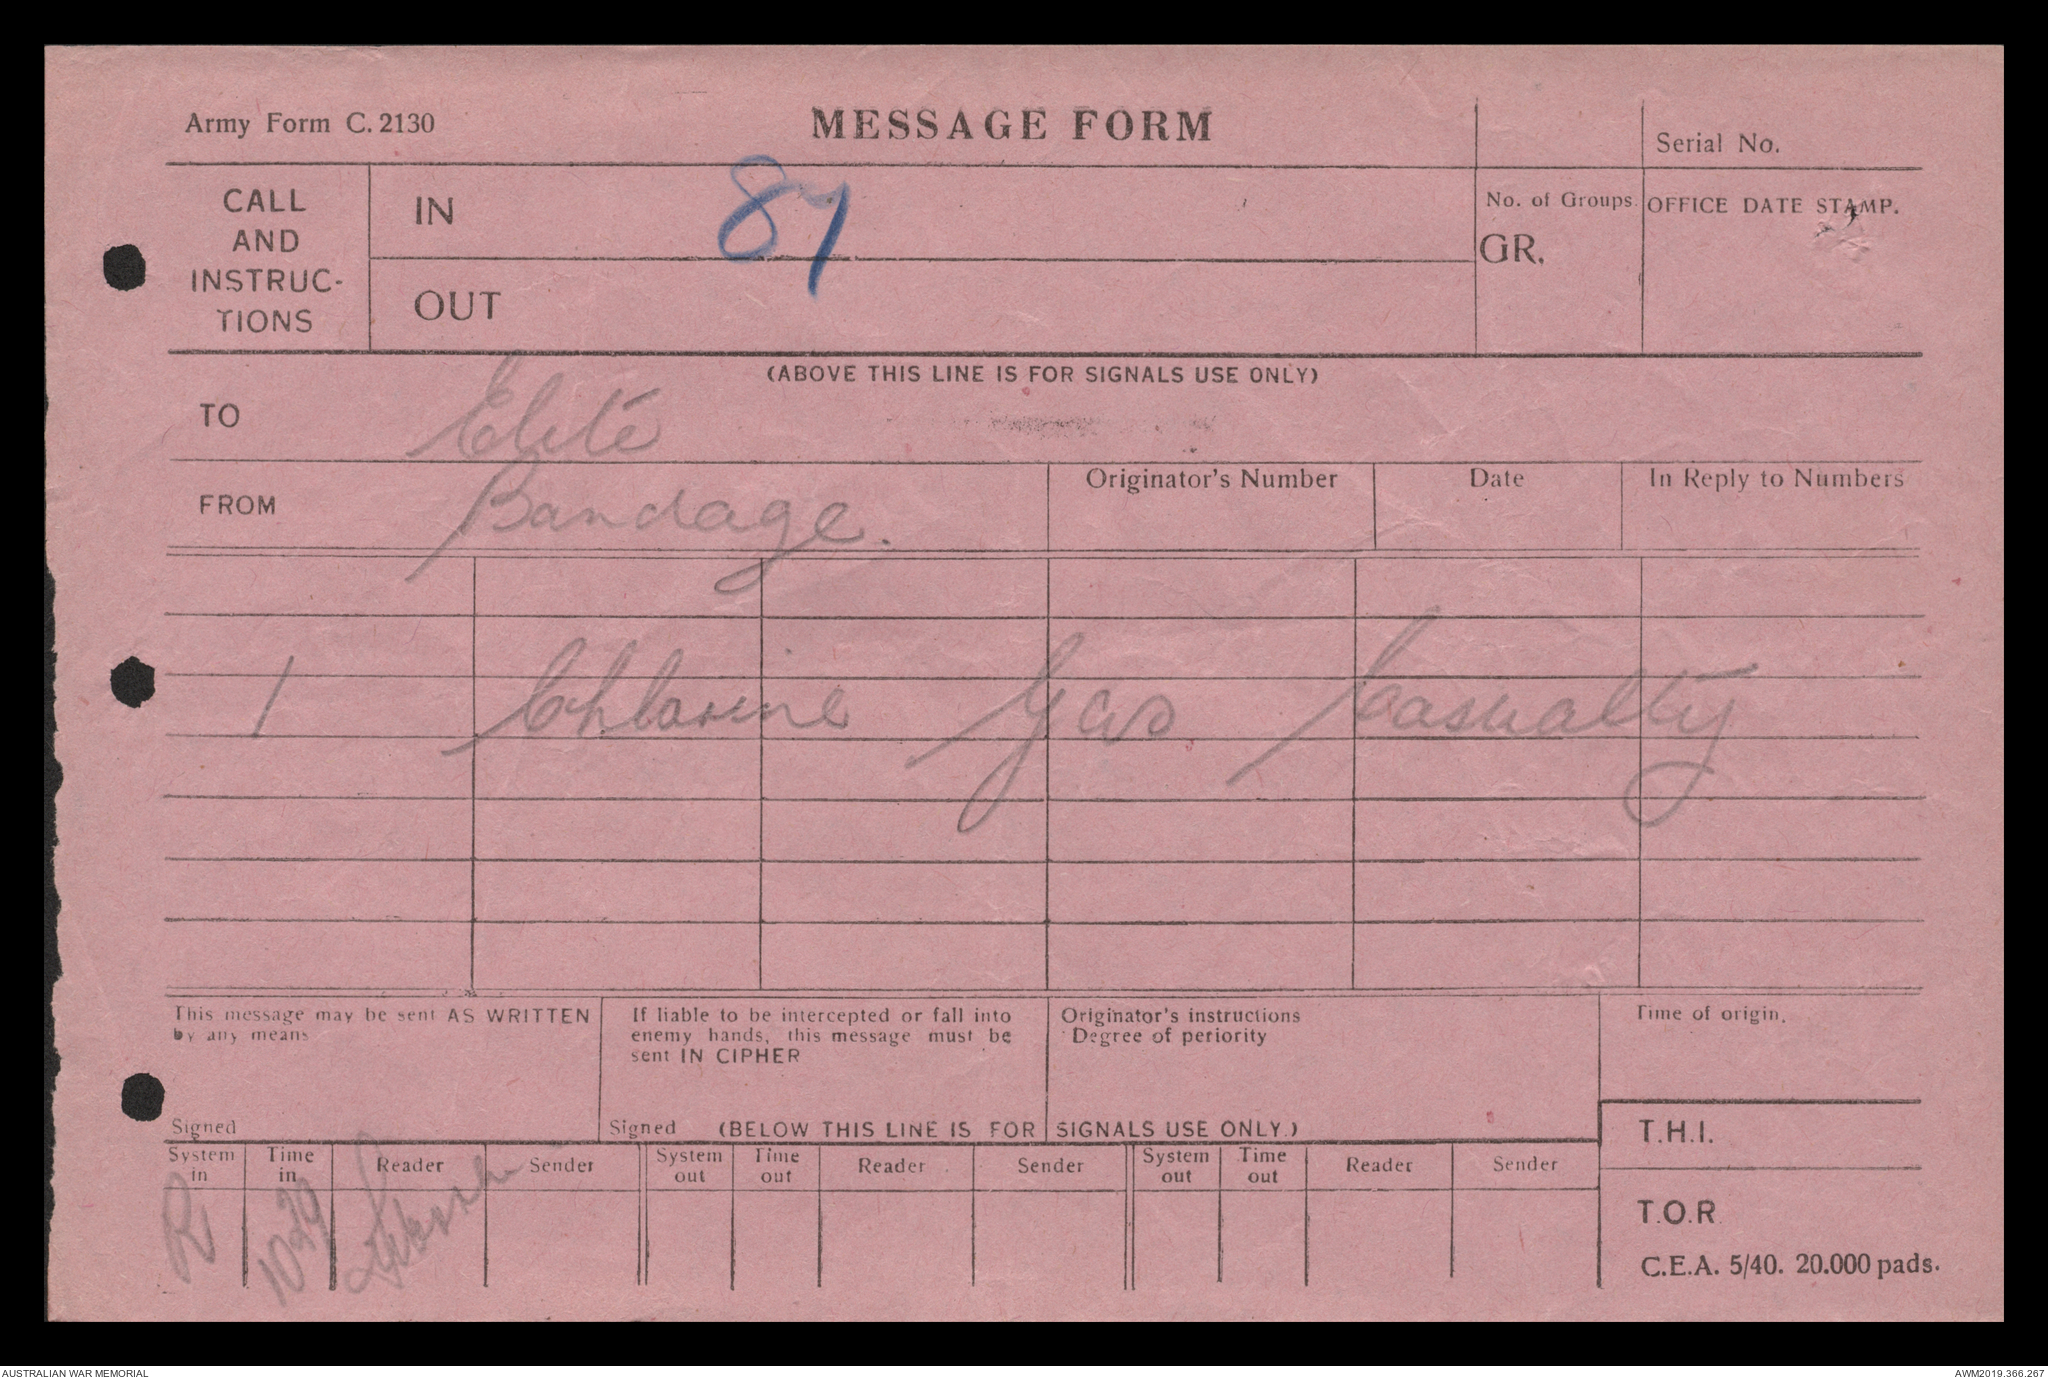 Army Form C. 2130
MESSAGE FORM
Serial No.
CALL
AND
INSTRUC-
TIONS
IN
87
No. of Groups
OFFICE DATE STAMP.
GR.
OUT
(ABOVE THIS LINE IS FOR SIGNALS USE ONLY)
TO
Elité
FROM
Bandage.
Originator's Number
Date
In Reply to Numbers
1 Chlorine Gas Casualty
This message may be sent AS WRITTEN
by any means
Signed
If liable to be intercepted or fall into
enemy hands, this message must be
sent IN CIPHER
Signed
Originator's instructions
Degree of periority
Time of origin.
(BELOW THIS LINE IS FOR SIGNALS USE ONLY.)
T.H.I.
System in Time in Reader Sender System out Time out Reader Sender System out Time out Reader Sender
R 1029
T.O.R
C.E.A. 5/40. 20.000 pads.
AUSTRALIAN WAR MEMORIAL
AWM2019.366.267